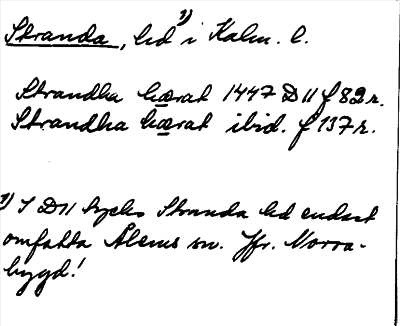 Stranda, hd ¹⁾ i Kalm. l.
Strandha hærat 1447 D 11 f 82 r.
Strandha hærat ibid. f 137 r.
1) I D 11 tycks Stranda hd endast
omfatta Ålems sn. Jfr. Norra-
bygd!